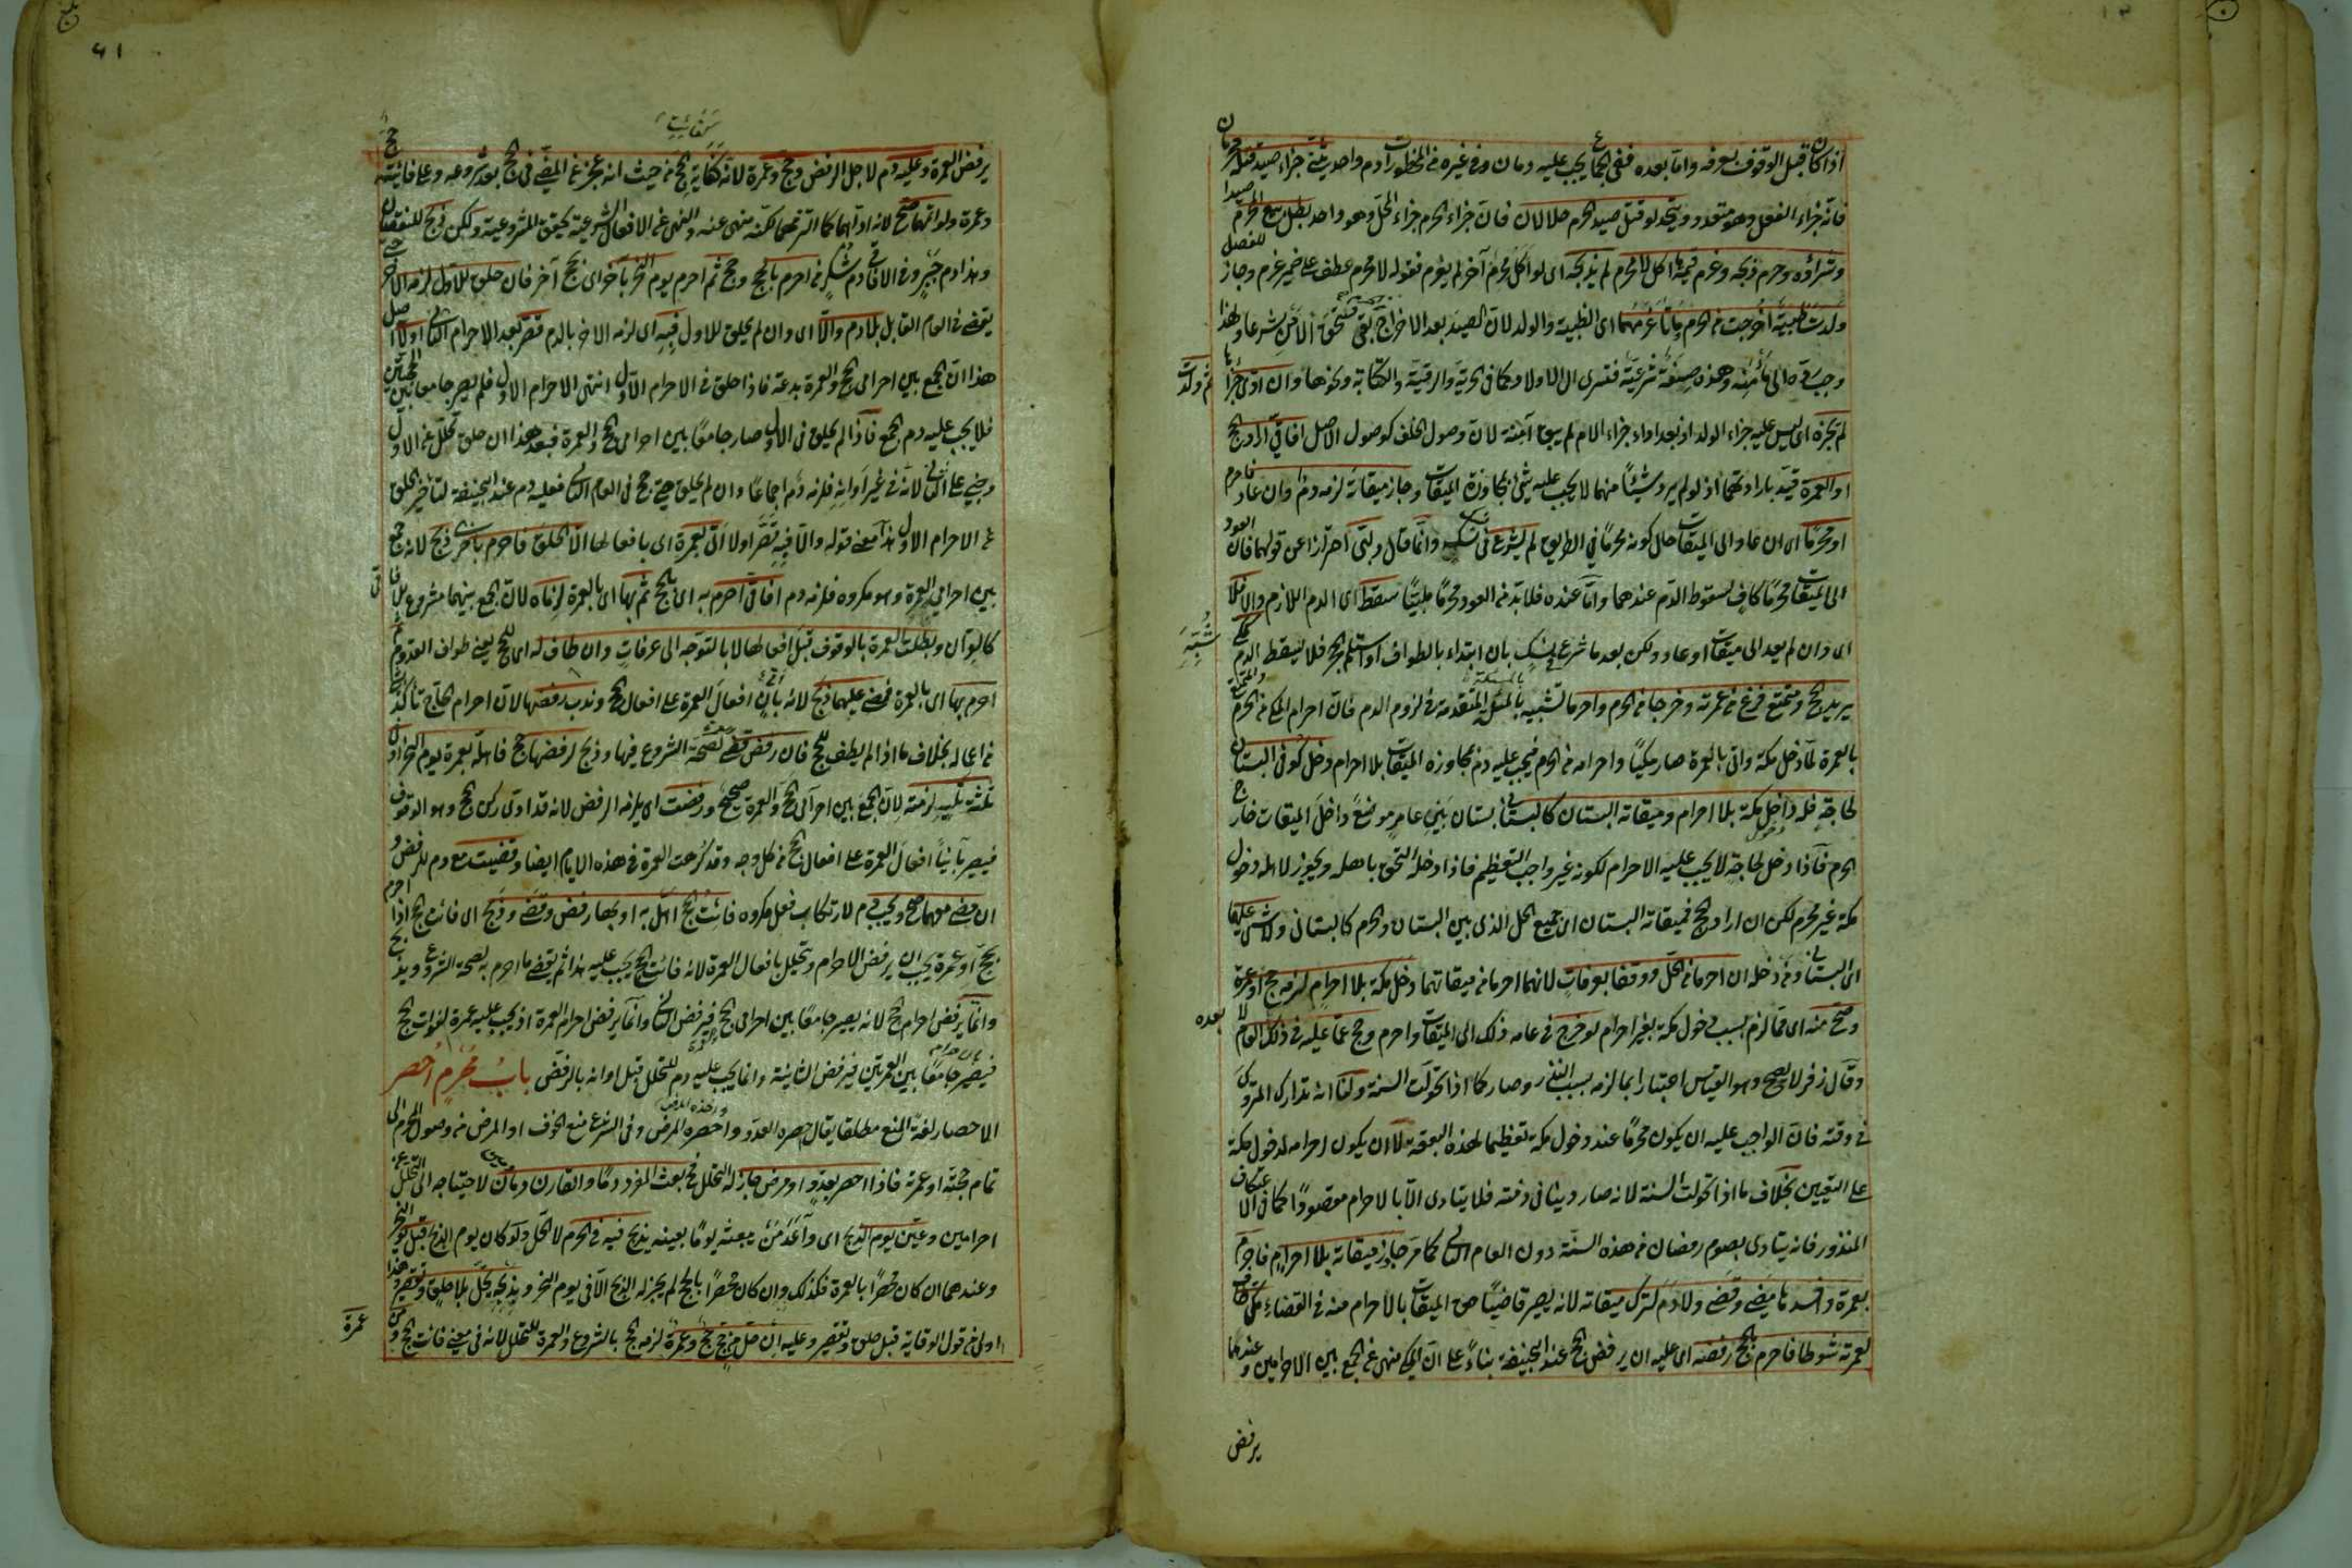 اذا كان قبل الوقوف بعرفة واما بعده ففي الجماع يجب عليه دمان وفي غيره من المحظورات دم واحد يثنى جزاء صيد قتله محرمان
فانه جزاء الفعل وهو متعدد ويتحد لو قتل صيد الحرم حلالان فان جزاء الحرم جزاء المحل وهو واحد بطل بيع المحرم صيدا
وشراؤه وحرم ذبحه وغرم قيمة ما اكل لا محرم لم يذبحه اى لو اكل محرم آخر لم يغرم فقوله لا محرم عطف على ضمير غرم وجاز للفصل
ولدت ظبية اخرجت من الحرم وماتا غرمهما اى الظبية والولد لان الصيد بعد الاخراج بقى مستحق الامن شرعا ولهذا
وجب رده الى مأمنه وهذه صفة شرعية فتسرى الى الاولاد كما في الحرية والرقية والكتابة ونحوها وان ادى جزاءها
ثم ولدت
لم يجزه اى ليس عليه جزاء الولد اذ بعد اداء جزاء الام لم يبق آمنة لان وصول الخلف كوصول الاصل افاقى اراد الحج
او العمرة قيد بارادتهما اذ لو لم يرد شيئا منهما لا يجب عليه شئ بمجاوزة الميقات وجاز ميقاته لزمه دم وان عاد فاحرم
او محرما اى ان عاد الى الميقات حال كونه محرما في الطريق لم يشرع في نسك وانما قال ولبى احترازا عن قولهما فان العود
الى الميقات محرما كاف لسقوط الدم عندهما واما عنده فلا بد من العود محرما ملبيا سقط اى الدم اللازم والا فلا
اى وان لم يعد الى ميقات او عاد ولكن بعد ما شرع في نسك بان ابتداء بالطواف او استلم الحجر فلا يسقط الدم كمكى
يريد الحج ومتمتع فرغ من عمرته وخرجا من الحرم واحرما تشبيه بالمسئلة المتقدمة في لزوم الدم فان احرام المكى من الحرم
بالعمرة لما دخل مكة واتى بالعمرة صار مكيا واحرامه من الحرم فيجب عليه دم بمجاوزة الميقات بلا احرام دخل كوفى البستان
لحاجة فله دخول مكة بلا احرام وميقاته البستان كالبستانى بستان بنى عامر موضع داخل الميقات خارج
الحرم فاذا دخل لحاجة لا يجب عليه الاحرام لكونه غير واجب التعظيم فاذا دخله التحق باهله ويجوز لاهله دخول
مكة غير محرم لكن ان اراد الحج فميقاته البستان اى جميع الحل الذى بين البستان والحرم كالبستانى ولا شئ عليهما
اى البستانى ومن دخله ان احرما من الحل ووقفا بعرفات لانهما احرما من ميقاتهما دخل مكة بلا احرام لزمه حج او عمرة
وصح منه اى مما لزم بسبب دخول مكة بغير احرام لو خرج في عامه ذلك الى الميقات واحرم وحج عما عليه في ذلك العام لا
بعده
وقال زفر لا يصح وهو القياس اعتبارا بما لزمه بسبب النذر وصار كما اذا تحولت السنة ولنا انه تدارك المتروك
في وقته فان الواجب عليه ان يكون محرما عند دخول مكة تعظيما لهذه البقعة لا ان يكون احرامه لدخول مكة
على التعيين بخلاف ما اذا تحولت السنة لانه صار دينا في ذمته فلا يتادى الا بالاحرام مقصودا كما في الاعتكاف
المنذور فانه يتادى بصوم رمضان من هذه السنة دون العام الثانى كما مر جاوز ميقاته بلا احرام فاحرم
بعمرة وافسدها مضى وقضى ولا دم لترك ميقاته لانه يصير قاضيا حق الميقات بالاحرام منه في القضاء مكى طاف
لعمرته شوطا فاحرم بالحج رفضه اى عليه ان يرفض الحج عند ابى حنيفة بناء على ان المكى منهى عن الجمع بين الاحرامين وعندهما
يرفض
٦١
يرفض العمرة وعليه دم لاجل الرفض وحج وعمرة لانه كفائت الحج من حيث انه عجز عن المضى في الحج بعد شروعه وعلى فائته حج
وعمرة ولو اتمهما صح لانه اداهما كما التزمهما لكنه منهى عنه والنهى عن الافعال الشرعية يحقق المشروعية ولكن ذبح للنقصان
وهذا دم جبر وفي الافاقى دم شكر من احرم بالحج وحج ثم احرم يوم النحر بآخر اى بحج آخر فان حلق للاول لزمه الآخر حتى
يقضى في العام القابل بلا دم والا اى وان لم يحلق للاول فبه اى لزمه الاخر بالدم قصر بعد الاحرام الثانى اولا اصل
هذا ان الجمع بين احرامى الحج والعمرة بدعة فاذا حلق في الاحرام الاول انتهى الاحرام الاول فلم يصر جامعا بين الحجتين
فلا يجب عليه دم الجمع فاذا لم يحلق في الاول صار جامعا بين احرامى الحج والعمرة فبعد هذا ان حلق تحلل عن الاول
وجنى على الثانى لانه في غير اوانه فلزمه دم اجماعا وان لم يحلق حتى حج في العام الثانى فعليه دم عند ابى حنيفة لتأخير الحلق
عن الاحرام الاول هذا معنى قوله والا فبه قصر اولا اتى بعمرة اى بافعالها الا الحلق فاحرم باخرى ذبح لانه جمع
بين احرامى العمرة وهو مكروه فلزمه دم افاقى احرم به اى بالحج ثم بها اى بالعمرة لزماه لان الجمع بينهما مشروع للافاقى
كالقران وبطلت العمرة بالوقوف قبل افعالها لا بالتوجه الى عرفات وان طاف له اى للحج يعنى طواف القدوم ثم
احرم بها اى بالعمرة فمضى عليهما ذبح لانه بان افعال العمرة على افعال الحج وندب رفضها لان احرام الحج تأكد
من اعماله بخلاف ما اذا لم يطف للحج فان رفض قضى لصحة الشروع فيها وذبح لرفضها حج فاهل بعمرة يوم النحر او في
ثلثة تليه لزمته لان الجمع بين احرامى الحج والعمرة صحيح ورفضت اى يلزمه الرفض لانه قد ادى ركن الحج وهو الوقوف
فيصير بانيا افعال العمرة على افعال الحج من كل وجه وقد كرهت العمرة في هذه الايام ايضا وقضيت مع دم للرفض و
ان مضى معهما صح ويجب دم لارتكاب فعل مكروه فائت الحج اهل به او بها رفض وقضى وذبح اى فائت الحج اذا احرم
بحج او عمرة يجب ان يرفض الاحرام ويتحلل بافعال العمرة لانه فائت الحج يجب عليه هذا ثم يقضى ما احرم به لصحة الشروع ويذبح
وانما يرفض احرام الحج لانه يصير جامعا بين احرامى الحج فيرفض الثانى وانما يرفض احرام العمرة اذ يجب عليه عمرة لفوات الحج
فيصير جامعا بين العمرتين فيرفض الثانية وانما يجب عليه دم للتحلل قبل اوانه بالرفض باب محرم احصر
الاحصار لغة المنع مطلقا يقال حصره العدو واحصره المرض وفى الشرع منع الخوف او المرض من وصول المحرم الى
تمام حجته او عمرته فاذا احصر بعدو او مرض جاز له التحلل فح بعث المفرد دما والقارن دمان لاحتياجه الى التحلل عن
احرامين وعين يوم الذبح اى واعد من يبعثه يوما بعينه يذبح فيه في الحرم لا الحل ولو كان يوم الذبح قبل يوم النحر
وعندهما ان كان محصرا بالعمرة فكذلك وان كان محصرا بالحج لم يجز له الذبح الا في يوم النحر وبذبحه يحل بلا حلق وتقصير وهذا
اولى من قول الوقاية قبل حلق وتقصير وعليه ان حل من حج حج وعمرة لزمه الحج بالشروع والعمرة للتحلل لانه في معنى فائت الحج و من
عمرة